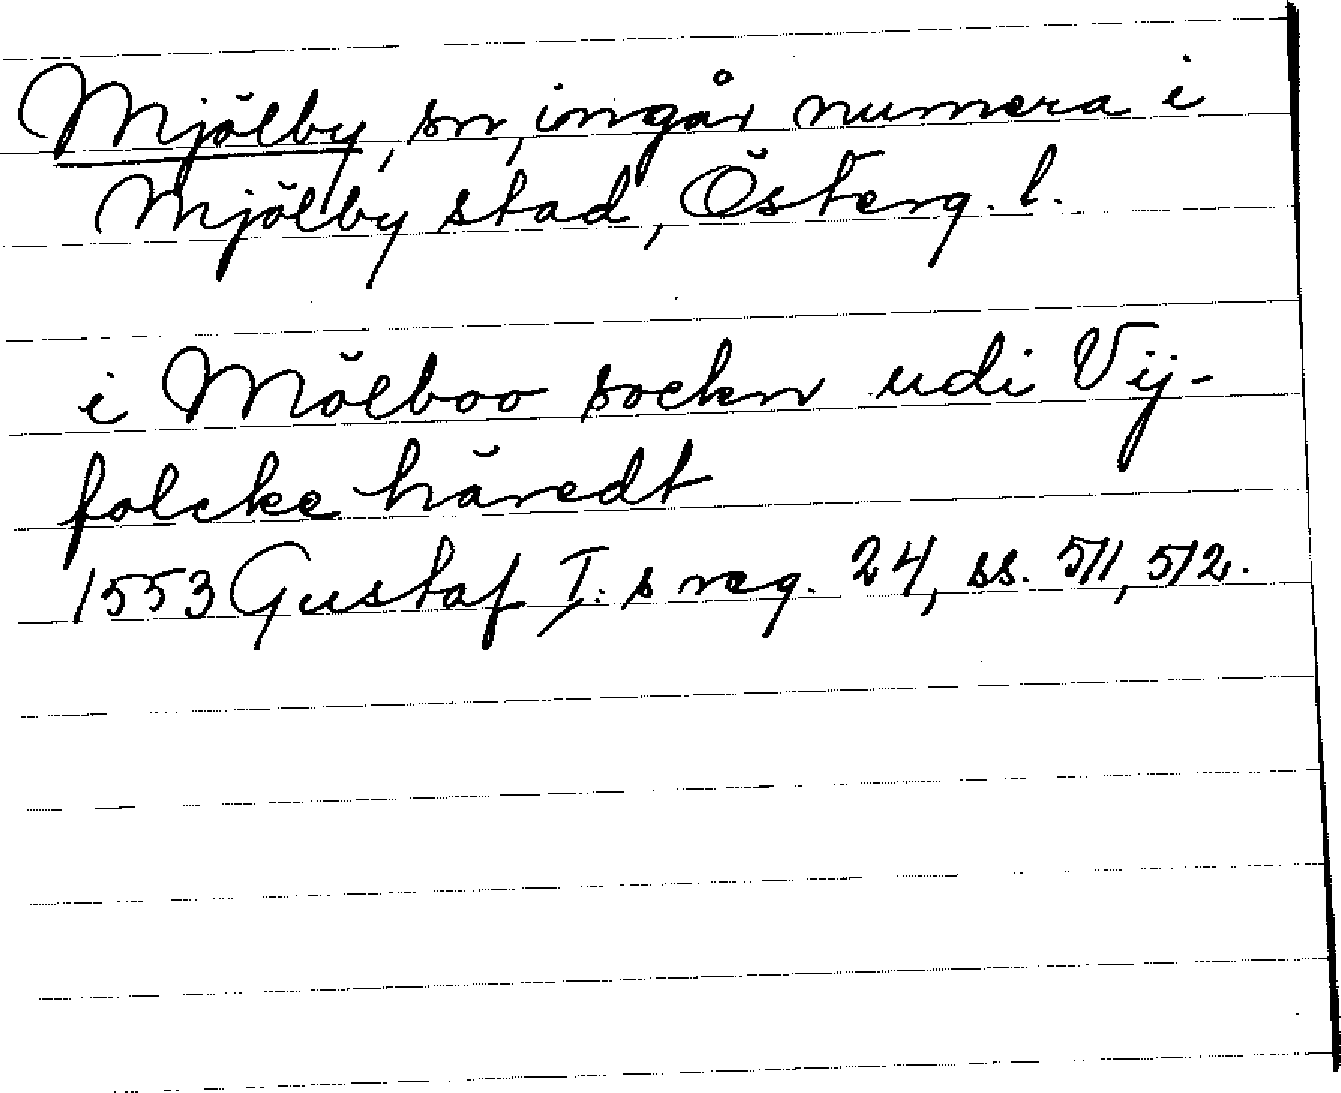 Mjölby, sn, ingår numera i
Mjölby stad, Österg. l.
i Mölboo sockn udi Vij-
folcke häredt
1553 Gustaf I:s reg. 24, ss. 511, 512.